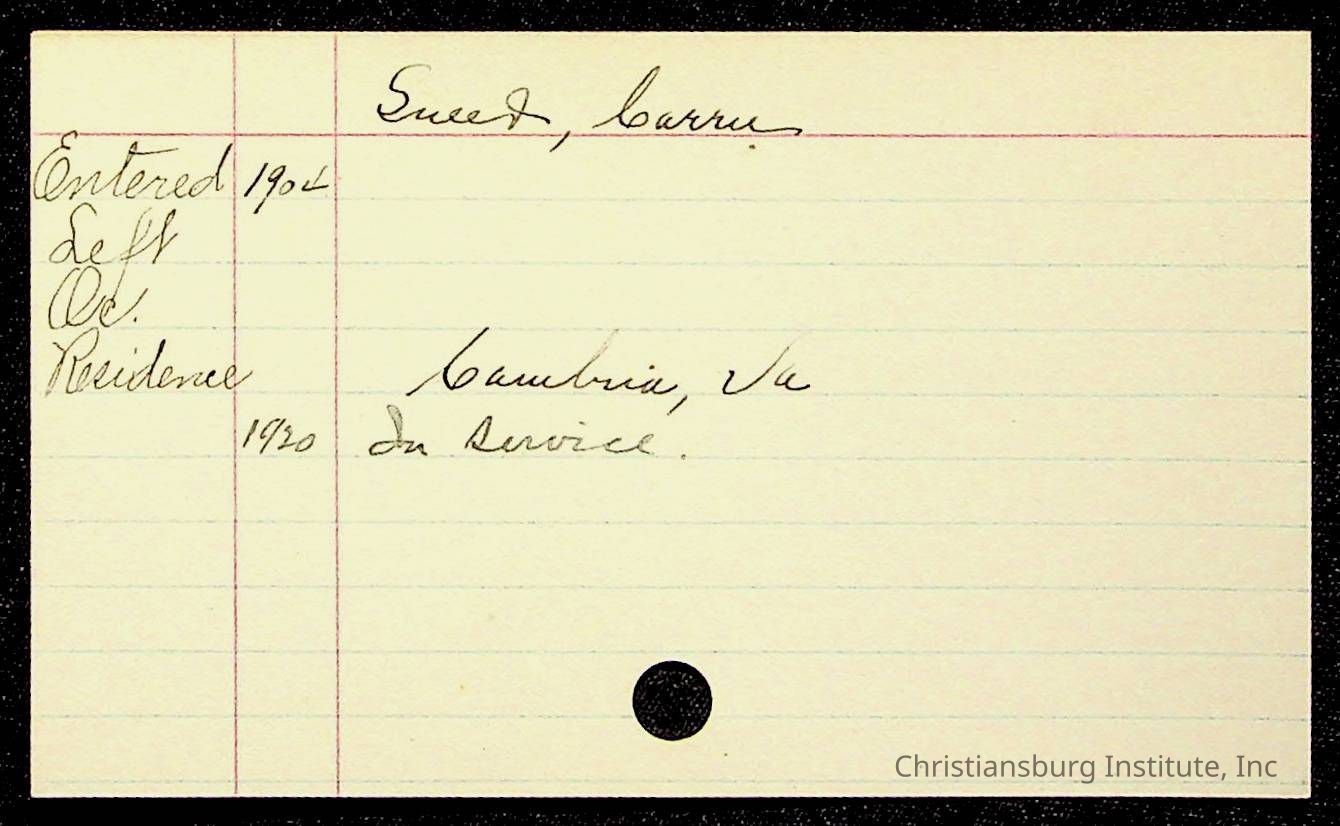 Sneed, Carrie
Entered 1904
Left
Oc.
Residence Cambria, Va
1920 In service.
Christiansburg Institute, Inc